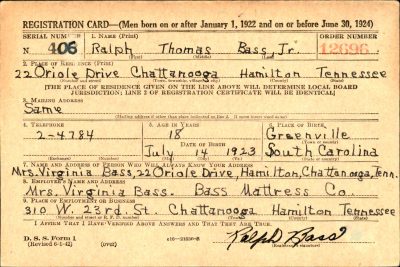 REGISTRATION CARD—(Men born on or after January 1, 1922 and on or before June 30, 1924)
SERIAL NUMBER 1. Name (Print) ORDER NUMBER
N 406 Ralph Thomas Bass, Jr. 12696
(First) (Middle) (Last)
2. Place of Residence (Print)
22 Oriole Drive Chattanooga Hamilton Tennessee
(Number and street) (Town, township, village, or city) (County) (State)
[THE PLACE OF RESIDENCE GIVEN ON THE LINE ABOVE WILL DETERMINE LOCAL BOARD
JURISDICTION; LINE 2 OF REGISTRATION CERTIFICATE WILL BE IDENTICAL]
3. Mailing Address
Same
[Mailing address if other than place indicated on line 2. If same insert word same]
4. Telephone 5. Age in Years 6. Place of Birth
2-4784 18 Greenville
Date of Birth (Town or county)
July 14 1923 South Carolina
(Exchange) (Number) (Mo.) (Day) (Yr.) (State or country)
7. Name and Address of Person Who Will Always Know Your Address
Mrs. Virginia Bass, 22 Oriole Drive, Hamilton, Chattanooga, Tenn.
8. Employer's Name and Address
Mrs. Virginia Bass. Bass Mattress Co.
9. Place of Employment or Business
310 W. 23rd. St. Chattanooga Hamilton Tennessee
(Number and street or R. F. D. number) (Town) (County) (State)
I Affirm That I Have Verified Above Answers and That They Are True.
D. S. S. Form 1
(Revised 6-1-42) (over)
Ralph Bass